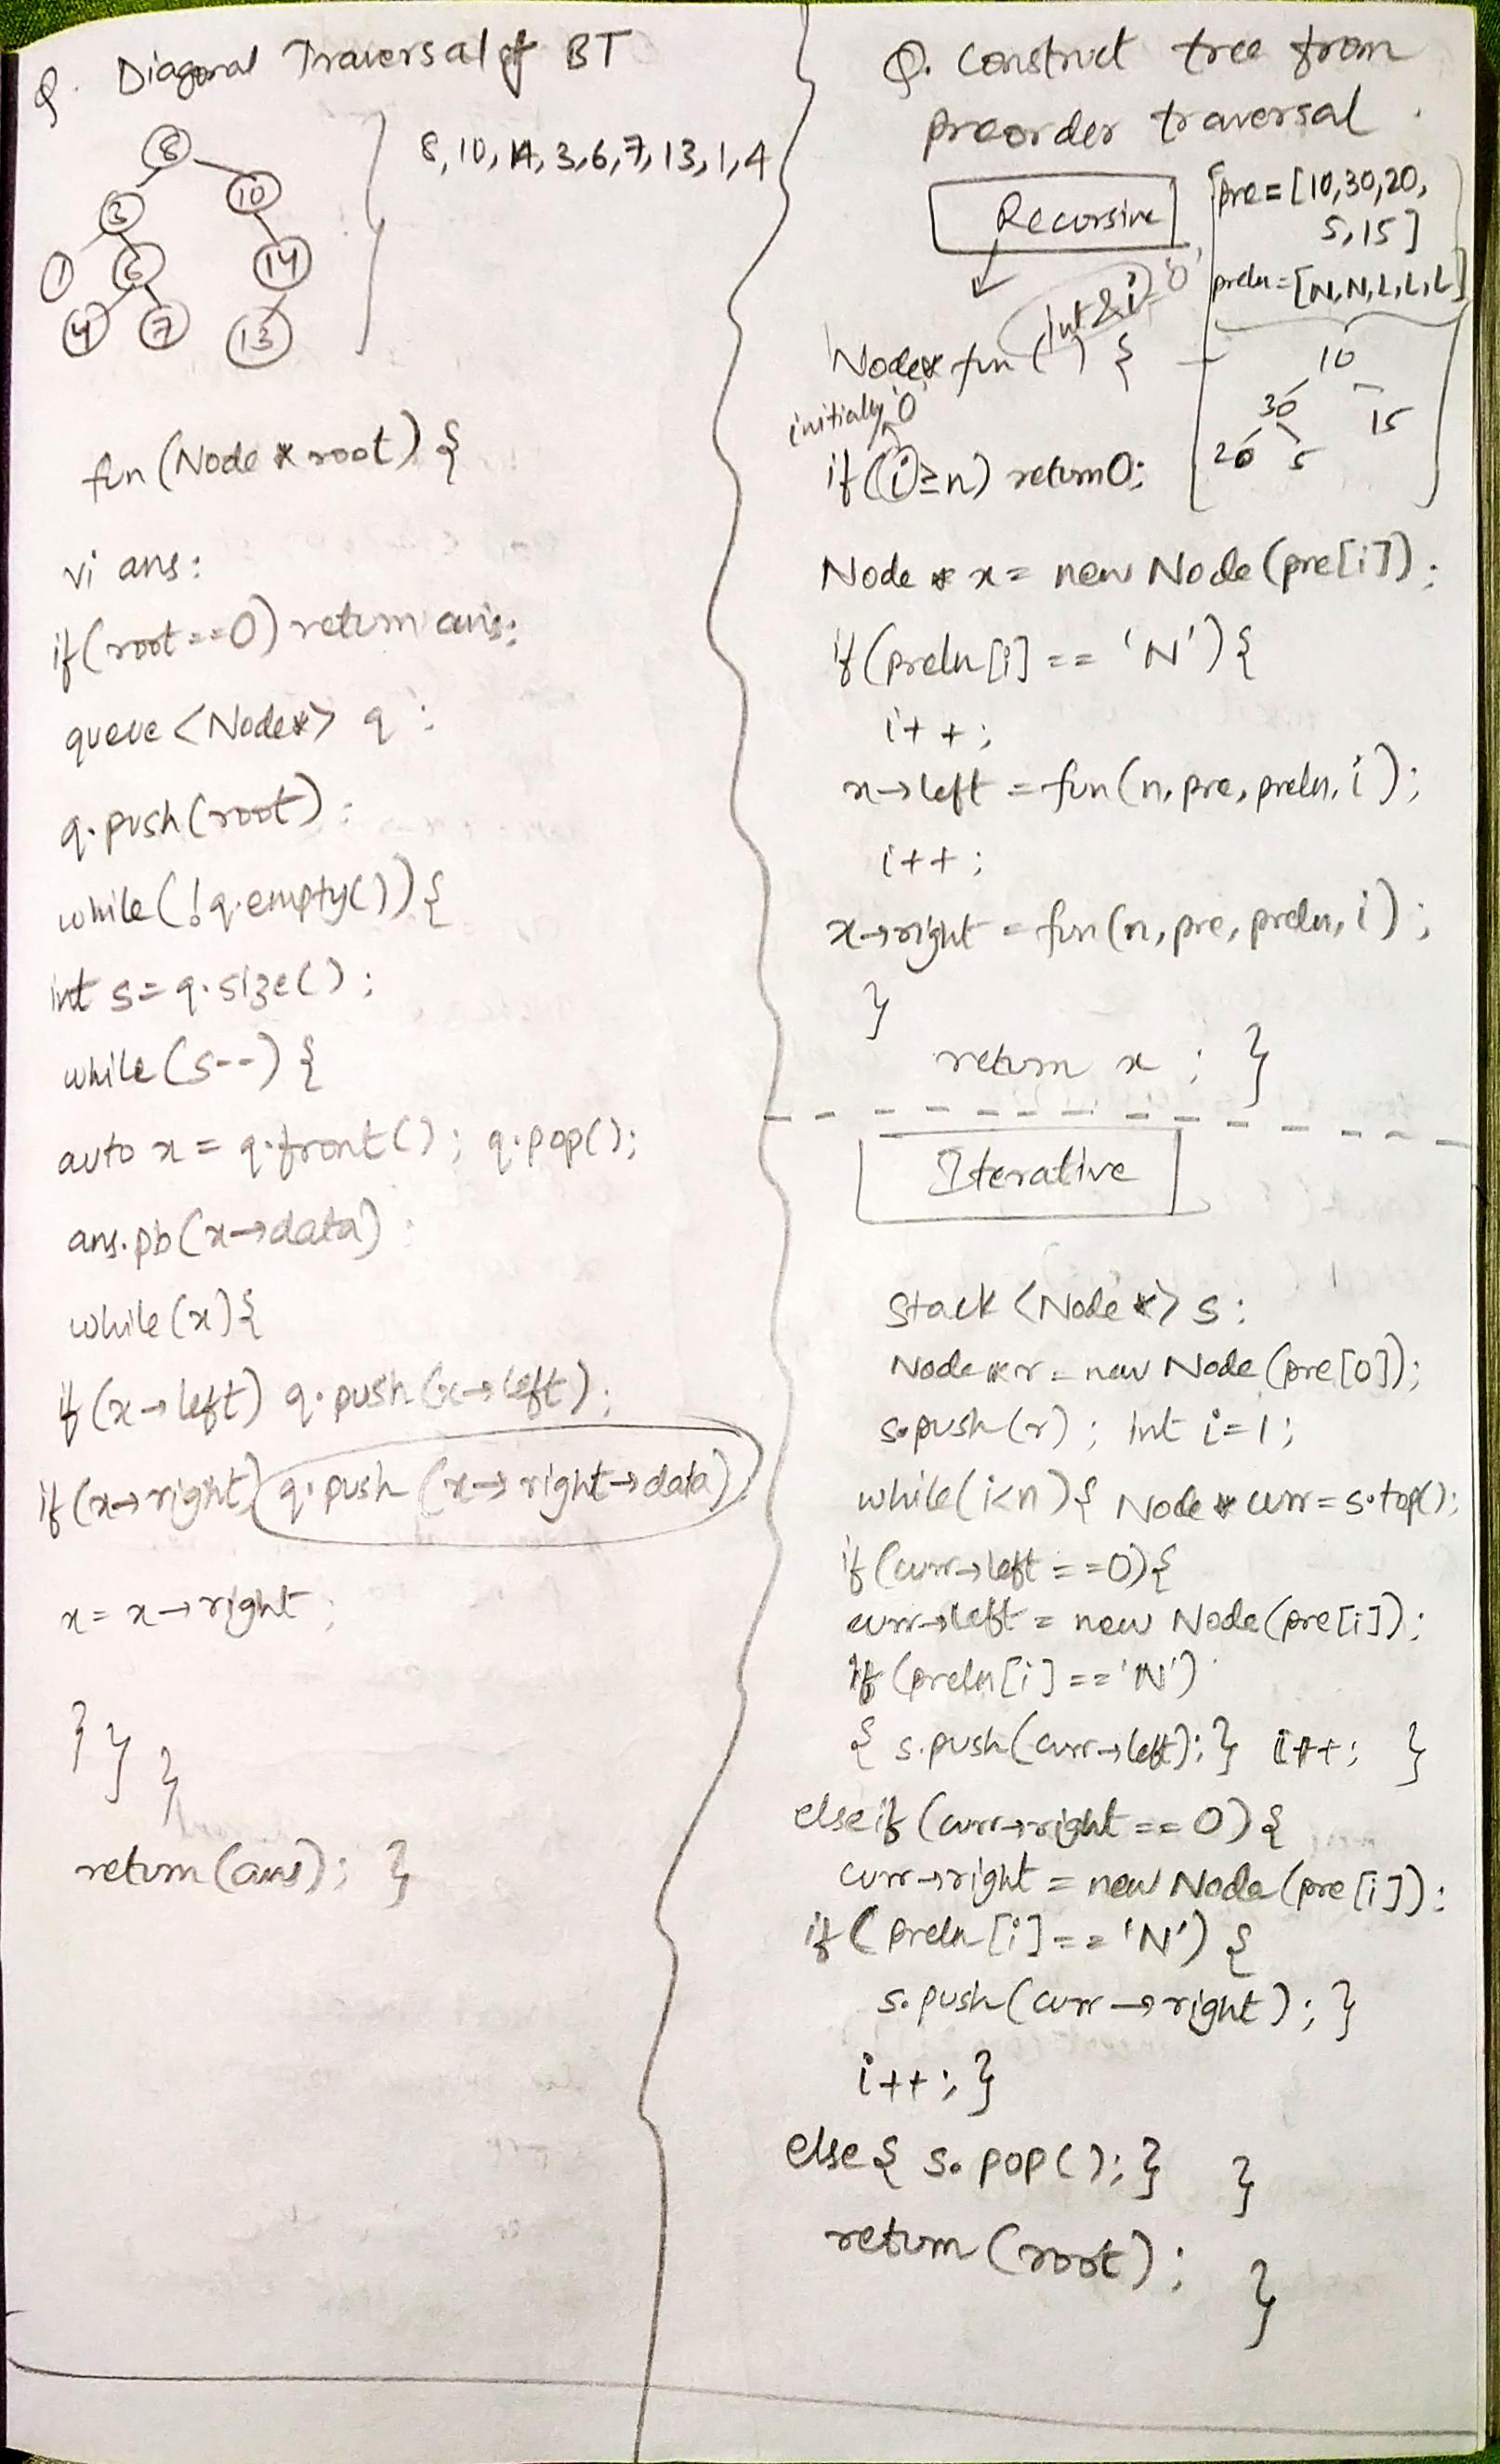 Q. Diagonal Traversal of BT
8, 10, 14, 3, 6, 7, 13, 1, 4
8
3
10
1
6
14
4
7
13
fun (Node * root) {
vi ans;
if (root == 0) return ans;
queue <Node*> q;
q.push(root);
while (!q.empty()) {
int s = q.size();
while (s--) {
auto x = q.front(); q.pop();
ans.pb(x→data);
while (x) {
if (x→left) q.push(x→left);
if (x→right) q.push(x→right→data);
x = x→right;
} } }
return (ans); }
Q. Construct tree from
preorder traversal.
Recursive
pre = [10, 30, 20,
5, 15]
preln = [N, N, L, L, L]
10
30
15
20 5
int & i = '0'
Node* fun ( ) {
initially '0'
if (i ≥ n) return 0;
Node * x = new Node (pre[i]);
if (preln[i] == 'N') {
i++;
x→left = fun (n, pre, preln, i);
i++;
x→right = fun (n, pre, preln, i);
}
return x; }
Iterative
Stack <Node *> s;
Node * r = new Node (pre[0]);
s.push(r); int i = 1;
while (i<n) { Node * curr = s.top();
if (curr→left == 0) {
curr→left = new Node (pre[i]);
if (preln[i] == 'N')
{ s.push(curr→left); } i++; }
else if (curr→right == 0) {
curr→right = new Node (pre[i]);
if (preln[i] == 'N') {
s.push(curr→right); }
i++; }
else { s.pop(); } }
return (root); }